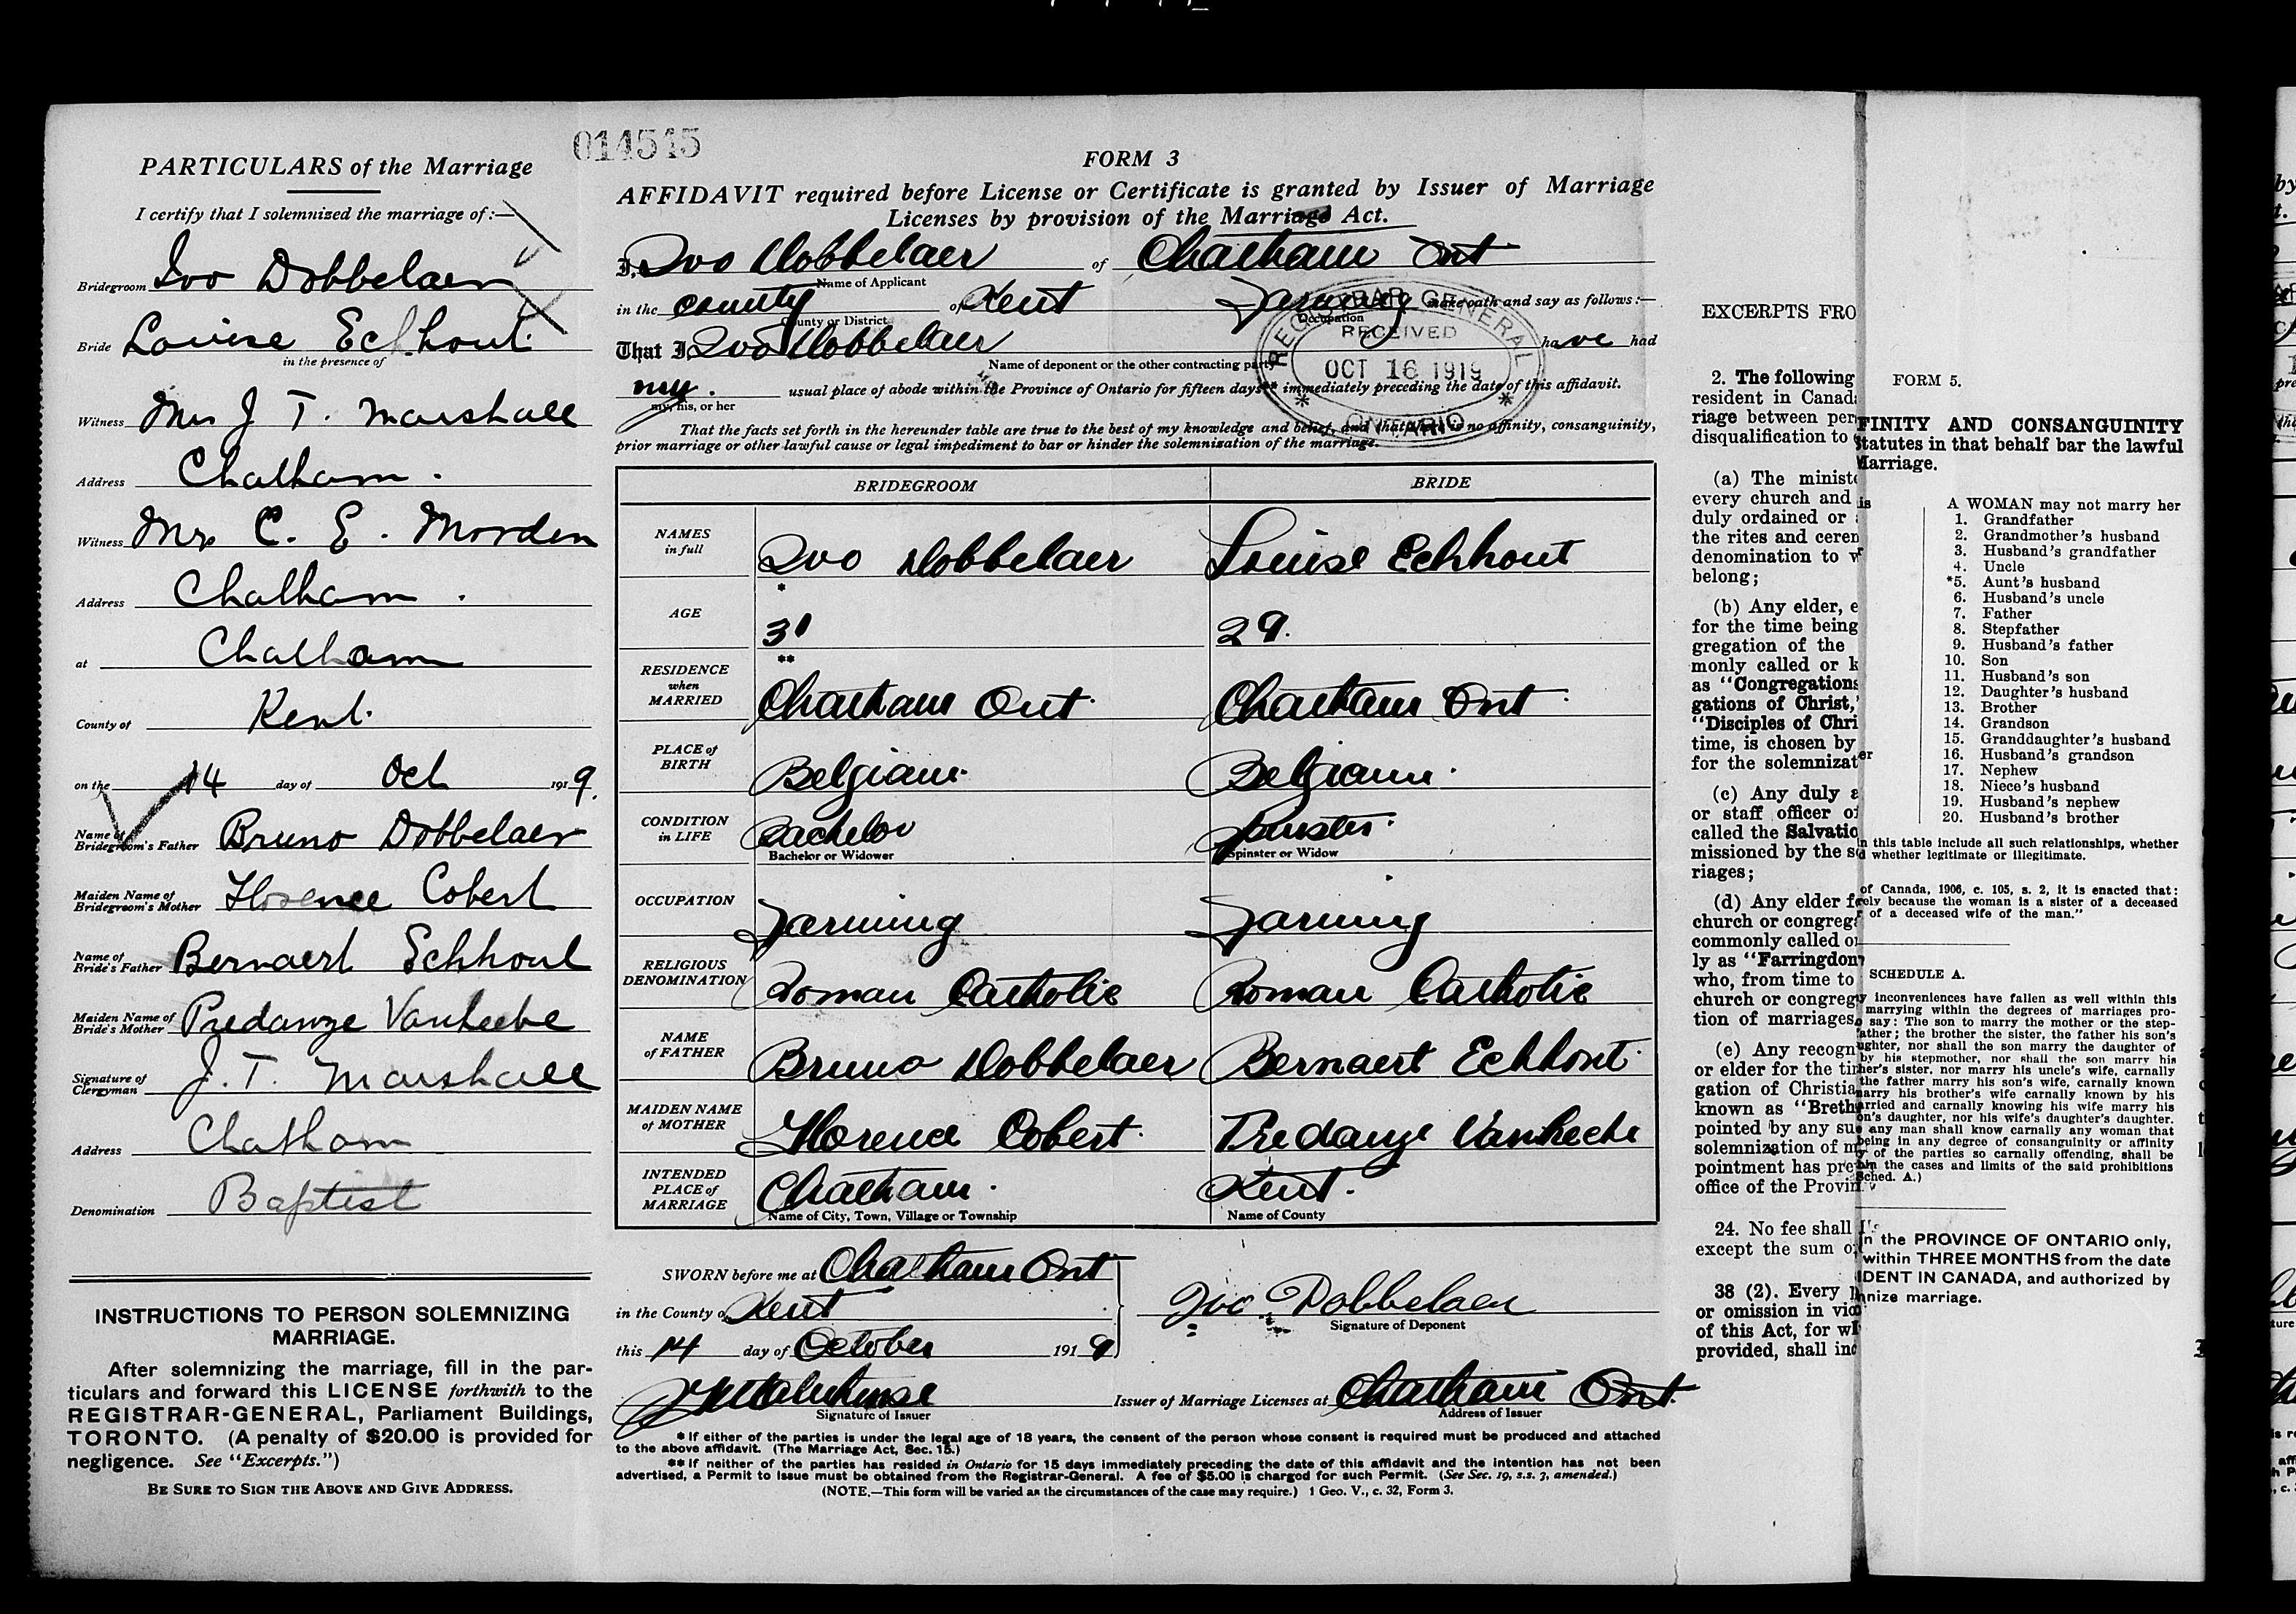 014515
PARTICULARS of the Marriage
I certify that I solemnized the marriage of:—
Bridegroom Ivo Dobbelaer
Bride Louise Eckhout
in the presence of
Witness Mrs J T. Marshall
Address Chatham.
Witness Mrs C. E. Morden
Address Chatham.
at Chatham
County of Kent.
on the 14 day of Oct 1919.
Name of Bridegroom's Father Bruno Dobbelaer
Maiden Name of Bridegroom's Mother Florence Cobert
Name of Bride's Father Bernaert Eckhout
Maiden Name of Bride's Mother Predanze Vanheebe
Signature of Clergyman J. T. Marshall
Address Chatham
Denomination Baptist
INSTRUCTIONS TO PERSON SOLEMNIZING
MARRIAGE.
After solemnizing the marriage, fill in the par-
ticulars and forward this LICENSE forthwith to the
REGISTRAR-GENERAL, Parliament Buildings,
TORONTO. (A penalty of $20.00 is provided for
negligence. See "Excerpts.")
BE SURE TO SIGN THE ABOVE AND GIVE ADDRESS.
FORM 3
AFFIDAVIT required before License or Certificate is granted by Issuer of Marriage
Licenses by provision of the Marriage Act.
I, Ivo Dobbelaer of Chatham Ont
Name of Applicant
in the county of Kent Farming make oath and say as follows:—
County or District Occupation
That I Ivo Dobbelaer have had
Name of deponent or the other contracting party
my. usual place of abode within the Province of Ontario for fifteen days** immediately preceding the date of this affidavit.
my, his, or her
REGISTRAR GENERAL
RECEIVED
OCT 16 1919
* ONTARIO *
That the facts set forth in the hereunder table are true to the best of my knowledge and belief, and that there is no affinity, consanguinity,
prior marriage or other lawful cause or legal impediment to bar or hinder the solemnization of the marriage.
BRIDEGROOM BRIDE
NAMES in full Ivo Dobbelaer Louise Eckhout
*
AGE 31 29.
**
RESIDENCE when MARRIED Chatham Ont. Chatham Ont.
PLACE of BIRTH Belgium. Belgium.
CONDITION in LIFE Bachelor Spinster.
Bachelor or Widower Spinster or Widow
OCCUPATION Farming Farming
RELIGIOUS DENOMINATION Roman Catholic Roman Catholic
NAME of FATHER Bruno Dobbelaer Bernaert Eckhout.
MAIDEN NAME of MOTHER Florence Cobert. Predanze Vanheche
INTENDED PLACE of MARRIAGE Chatham. Kent.
Name of City, Town, Village or Township Name of County
SWORN before me at Chatham Ont
in the County of Kent
this 14 day of October 1919
Ivo Dobbelaer
Signature of Deponent
Signature of Issuer
Issuer of Marriage Licenses at Chatham Ont.
Address of Issuer
* If either of the parties is under the legal age of 18 years, the consent of the person whose consent is required must be produced and attached
to the above affidavit. (The Marriage Act, Sec. 15.)
** If neither of the parties has resided in Ontario for 15 days immediately preceding the date of this affidavit and the intention has not been
advertised, a Permit to Issue must be obtained from the Registrar-General. A fee of $5.00 is charged for such Permit. (See Sec. 19, s.s. 3, amended.)
(NOTE.—This form will be varied as the circumstances of the case may require.) 1 Geo. V., c. 32, Form 3.
EXCERPTS FRO
2. The following
resident in Canad
riage between per
disqualification to
(a) The minist
every church and
duly ordained or
the rites and cerem
denomination to w
belong;
(b) Any elder, e
for the time being
gregation of the
monly called or k
as "Congregations
gations of Christ,"
"Disciples of Chri
time, is chosen by
for the solemnizat
(c) Any duly a
or staff officer of
called the Salvatio
missioned by the s
riages;
(d) Any elder f
church or congreg
commonly called o
ly as "Farringdon
who, from time to
church or congreg
tion of marriages,
(e) Any recogn
or elder for the ti
gation of Christia
known as "Breth
pointed by any su
solemnization of m
pointment has pre
office of the Provin
24. No fee shall
except the sum o
38 (2). Every
or omission in vio
of this Act, for wh
provided, shall inc
FORM 5.
FINITY AND CONSANGUINITY
Statutes in that behalf bar the lawful
Marriage.
A WOMAN may not marry her
1. Grandfather
2. Grandmother's husband
3. Husband's grandfather
4. Uncle
*5. Aunt's husband
6. Husband's uncle
7. Father
8. Stepfather
9. Husband's father
10. Son
11. Husband's son
12. Daughter's husband
13. Brother
14. Grandson
15. Granddaughter's husband
16. Husband's grandson
17. Nephew
18. Niece's husband
19. Husband's nephew
20. Husband's brother
n this table include all such relationships, whether
d whether legitimate or illegitimate.
of Canada, 1906, c. 105, s. 2, it is enacted that:
rely because the woman is a sister of a deceased
r of a deceased wife of the man."
SCHEDULE A.
y inconveniences have fallen as well within this
marrying within the degrees of marriages pro-
o say: The son to marry the mother or the step-
ather; the brother the sister, the father his son's
ughter, nor shall the son marry the daughter of
by his stepmother, nor shall the son marry his
her's sister, nor marry his uncle's wife, carnally
the father marry his son's wife, carnally known
marry his brother's wife carnally known by his
arried and carnally knowing his wife marry his
on's daughter, nor his wife's daughter's daughter.
any man shall know carnally any woman that
being in any degree of consanguinity or affinity
y of the parties so carnally offending, shall be
in the cases and limits of the said prohibitions
Sched. A.)
n the PROVINCE OF ONTARIO only,
within THREE MONTHS from the date
DENT IN CANADA, and authorized by
nize marriage.